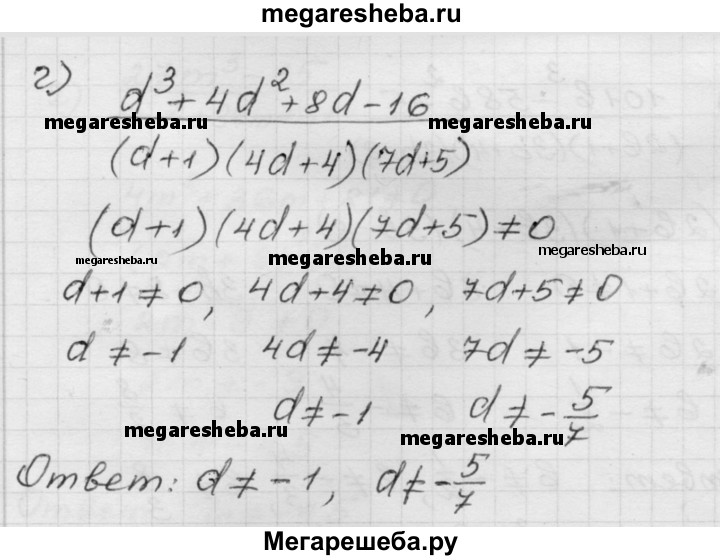 megaresheba.ru
г) d³ + 4d² + 8d - 16
megaresheba.ru megaresheba.ru
(d+1)(4d+4)(7d+5)
(d+1)(4d+4)(7d+5) ≠ 0
megaresheba.ru megaresheba.ru megaresheba.ru
d+1 ≠ 0, 4d+4 ≠ 0, 7d+5 ≠ 0
d ≠ -1 4d ≠ -4 7d ≠ -5
d ≠ -1 d ≠ -5/7
megaresheba.ru megaresheba.ru
Ответ: d ≠ -1, d ≠ -5/7
Мегарешеба.ру